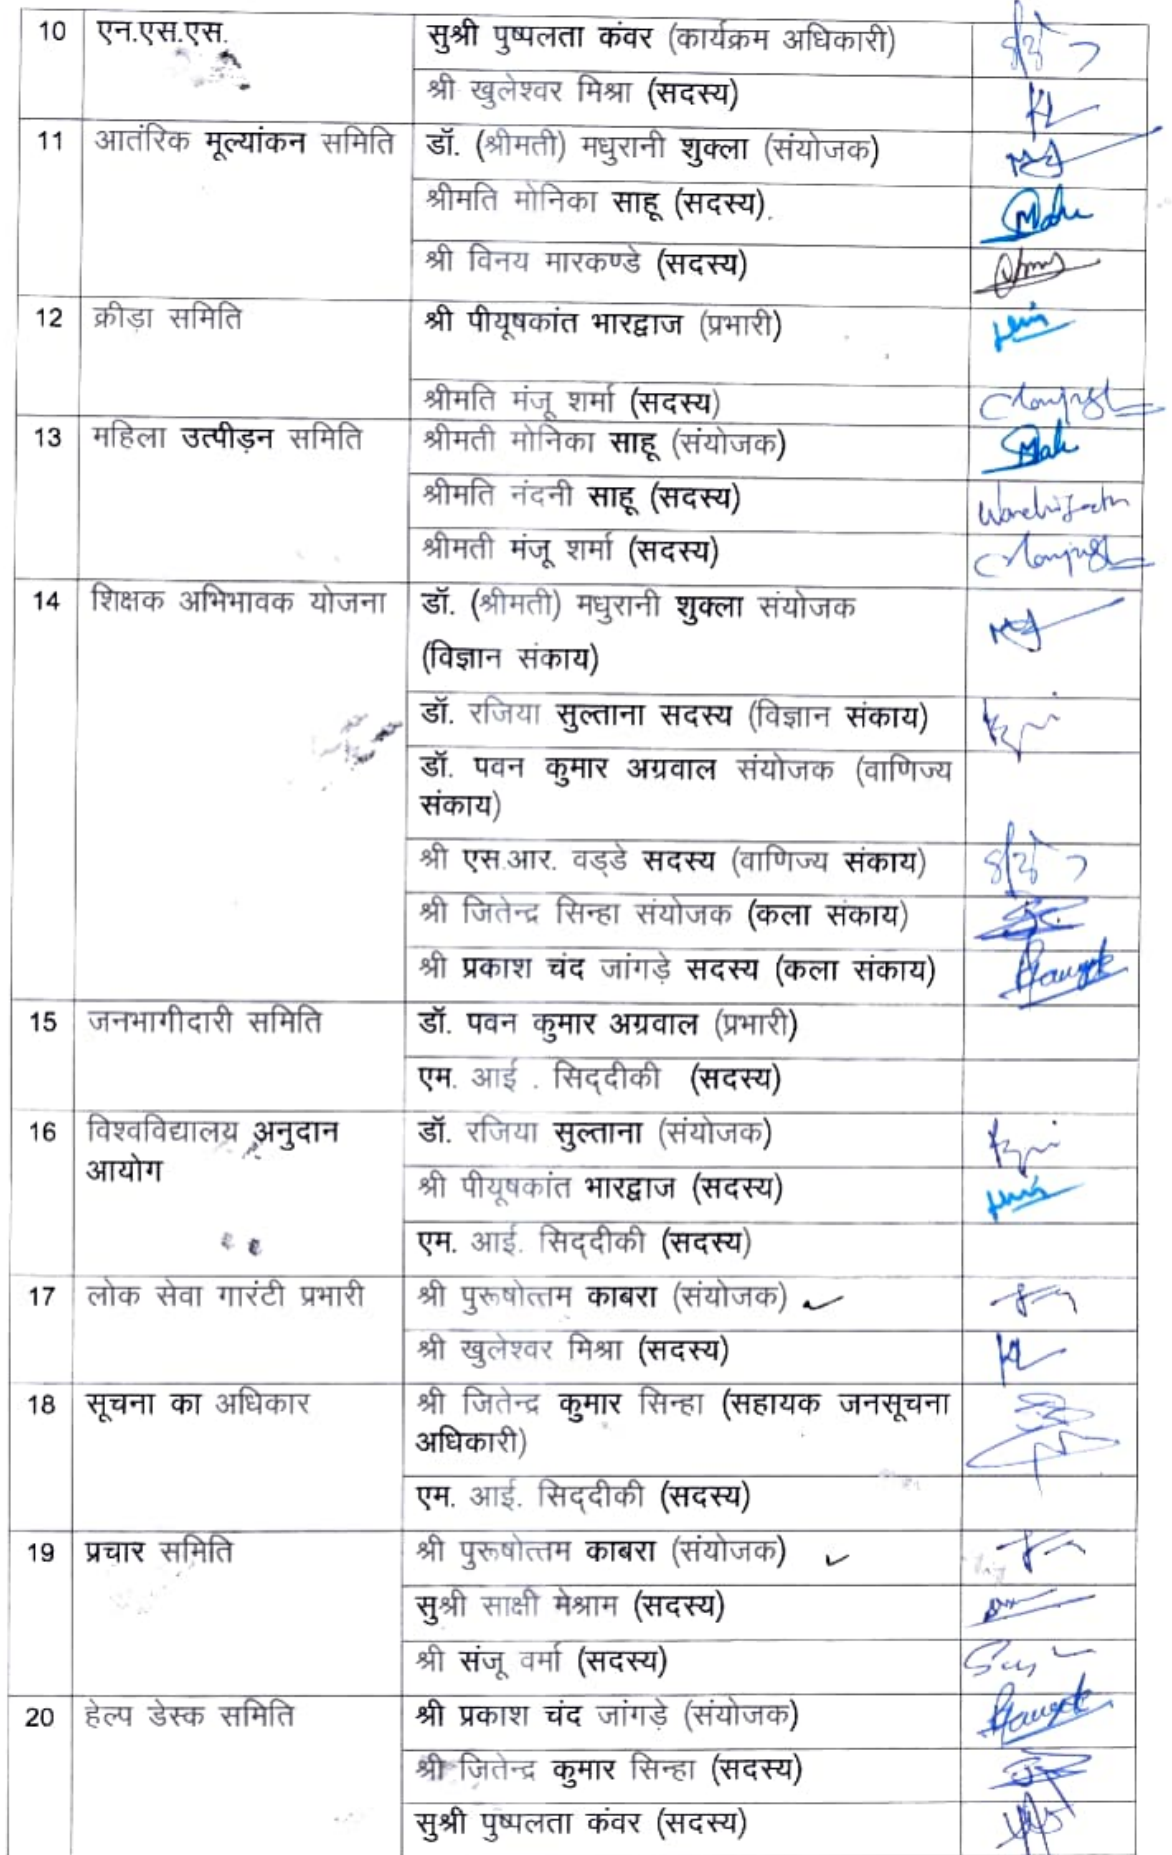 10 एन.एस.एस. सुश्री पुष्पलता कंवर (कार्यक्रम अधिकारी)
श्री खुलेश्वर मिश्रा (सदस्य)
11 आतंरिक मूल्यांकन समिति डॉ. (श्रीमती) मधुरानी शुक्ला (संयोजक)
श्रीमति मोनिका साहू (सदस्य).
श्री विनय मारकण्डे (सदस्य)
12 क्रीड़ा समिति श्री पीयूषकांत भारद्वाज (प्रभारी)
श्रीमति मंजू शर्मा (सदस्य)
13 महिला उत्पीड़न समिति श्रीमती मोनिका साहू (संयोजक)
श्रीमति नंदनी साहू (सदस्य)
श्रीमती मंजू शर्मा (सदस्य)
14 शिक्षक अभिभावक योजना डॉ. (श्रीमती) मधुरानी शुक्ला संयोजक
(विज्ञान संकाय)
डॉ. रजिया सुल्ताना सदस्य (विज्ञान संकाय)
डॉ. पवन कुमार अग्रवाल संयोजक (वाणिज्य
संकाय)
श्री एस.आर. वड्डे सदस्य (वाणिज्य संकाय)
श्री जितेन्द्र सिन्हा संयोजक (कला संकाय)
श्री प्रकाश चंद जांगड़े सदस्य (कला संकाय)
15 जनभागीदारी समिति डॉ. पवन कुमार अग्रवाल (प्रभारी)
एम. आई . सिद्दीकी (सदस्य)
16 विश्वविद्यालय अनुदान डॉ. रजिया सुल्ताना (संयोजक)
आयोग
श्री पीयूषकांत भारद्वाज (सदस्य)
एम. आई. सिद्दीकी (सदस्य)
17 लोक सेवा गारंटी प्रभारी श्री पुरूषोत्तम काबरा (संयोजक)
श्री खुलेश्वर मिश्रा (सदस्य)
18 सूचना का अधिकार श्री जितेन्द्र कुमार सिन्हा (सहायक जनसूचना
अधिकारी)
एम. आई. सिद्दीकी (सदस्य)
19 प्रचार समिति श्री पुरूषोत्तम काबरा (संयोजक)
सुश्री साक्षी मेश्राम (सदस्य)
श्री संजू वर्मा (सदस्य)
20 हेल्प डेस्क समिति श्री प्रकाश चंद जांगड़े (संयोजक)
श्री जितेन्द्र कुमार सिन्हा (सदस्य)
सुश्री पुष्पलता कंवर (सदस्य)